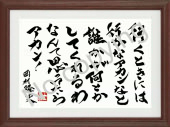 行くときには
行かなアカンなと
誰かが何とか
してくれるわ
なんて思てたら
アカン!
岡村隆史